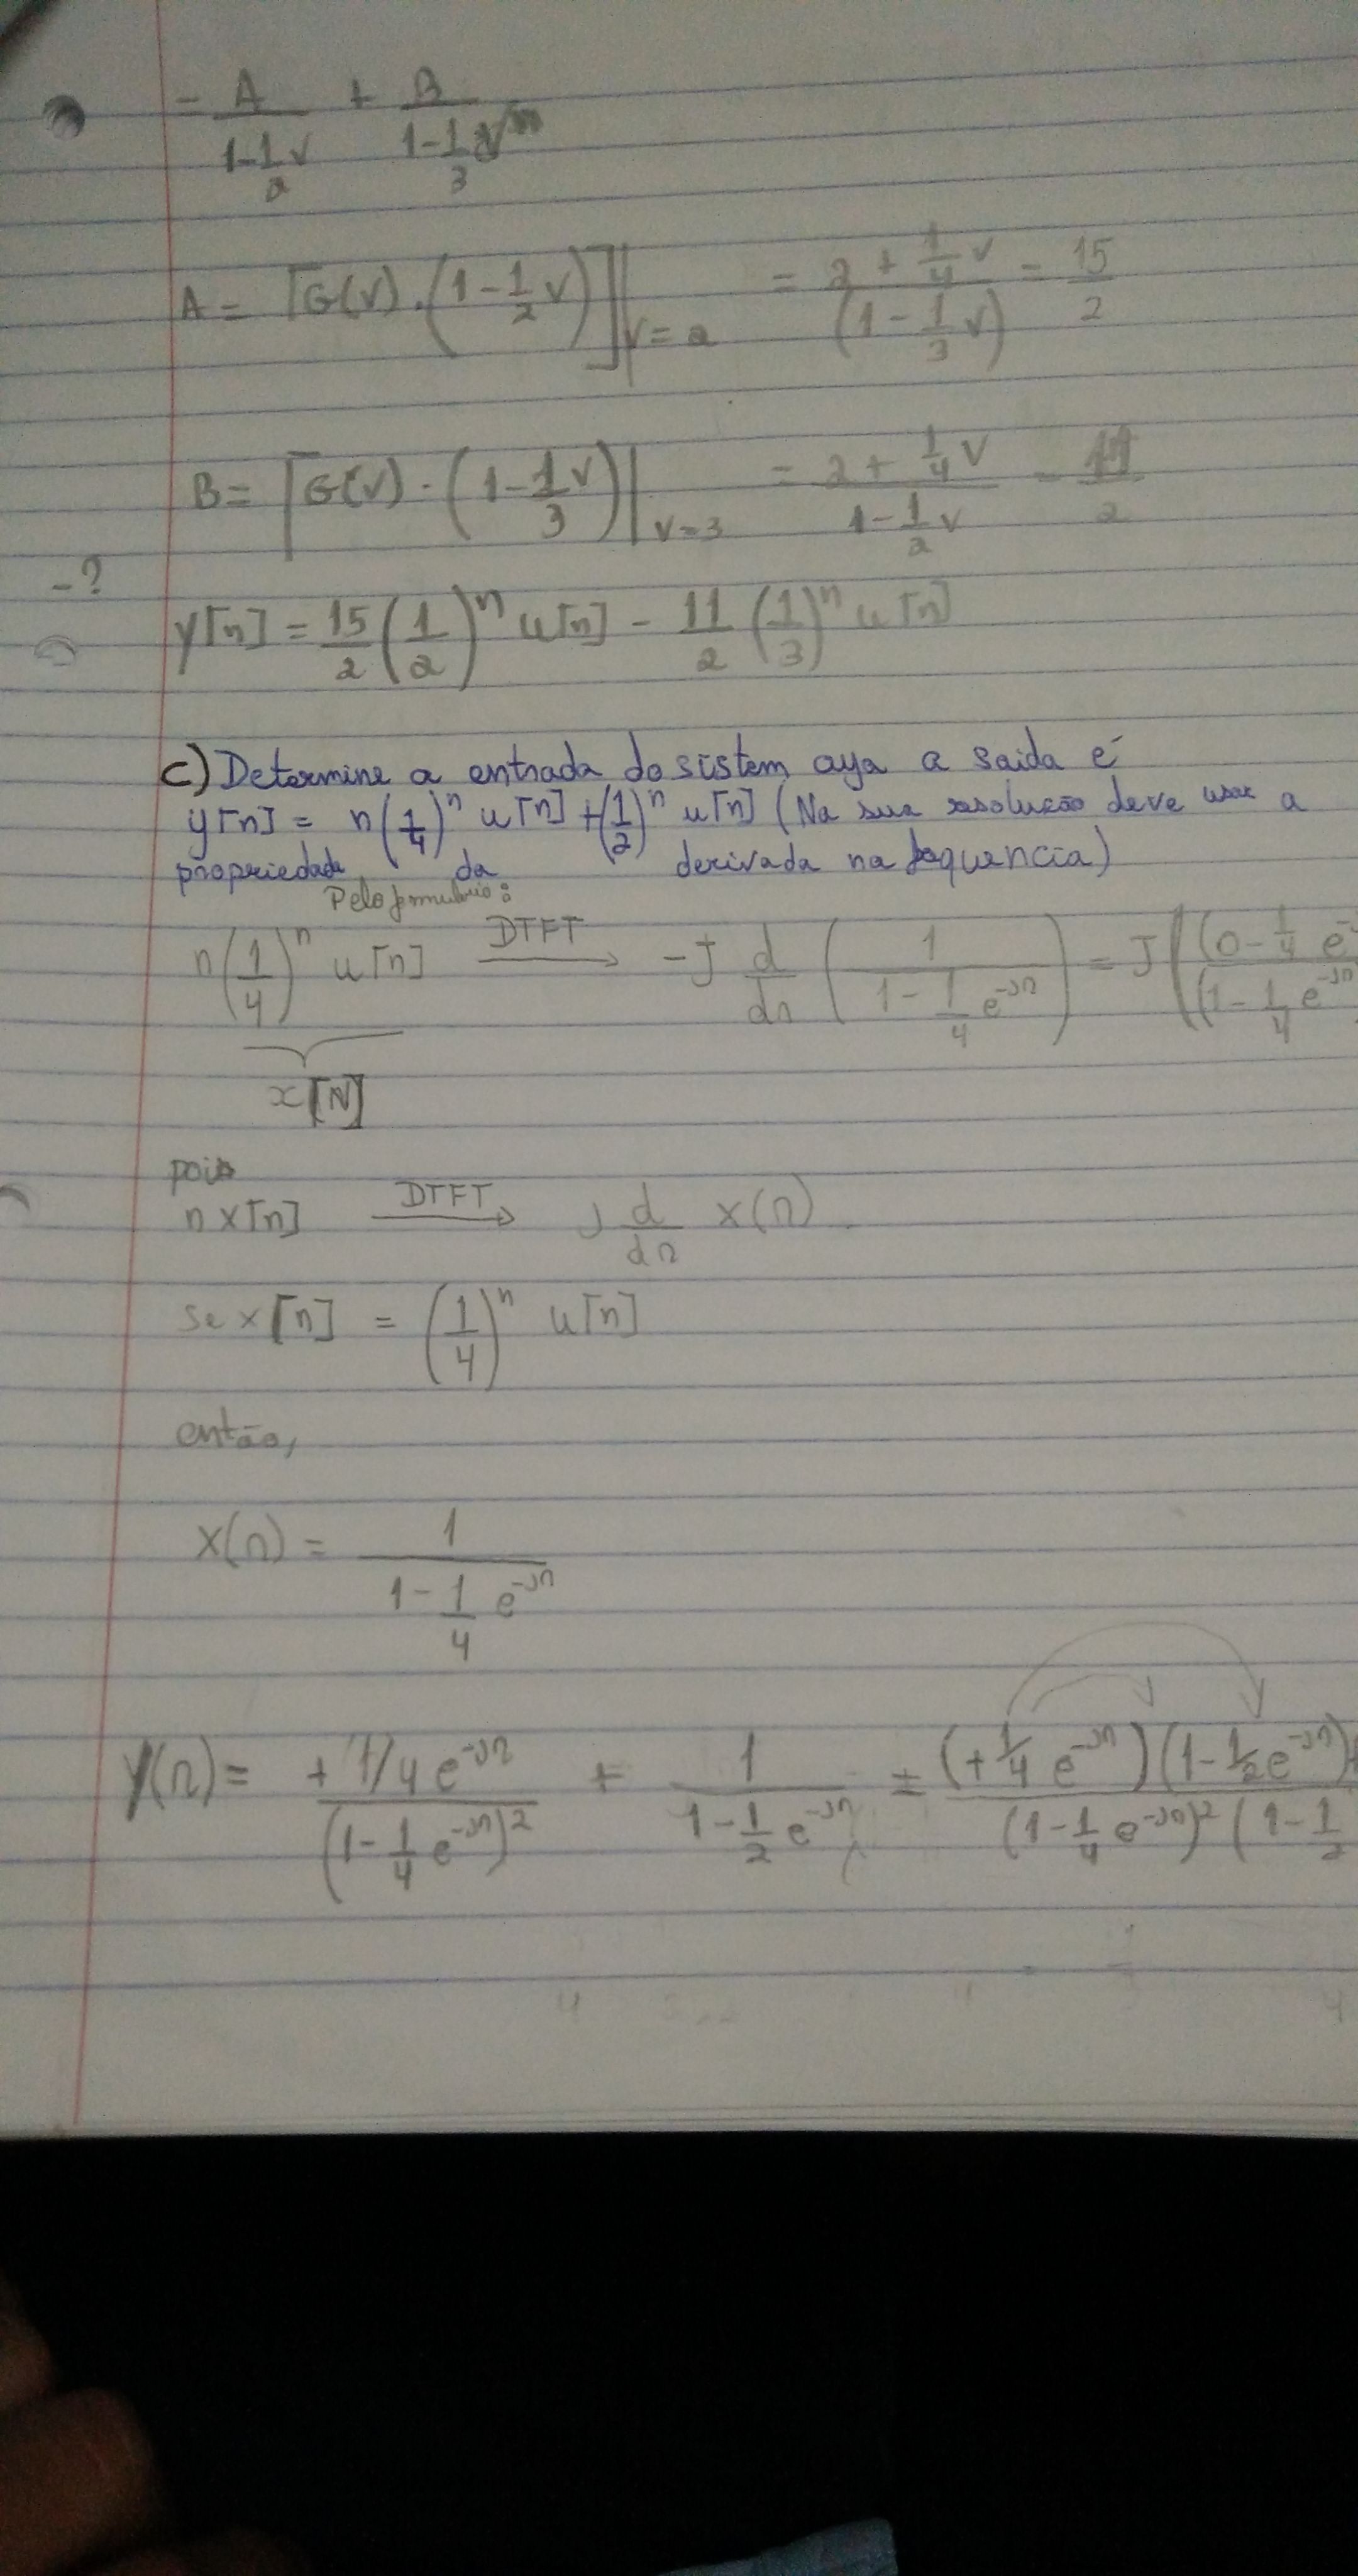 = A/(1-1/2 v) + B/(1-1/3 v)
A = [G(v).(1-1/2 v)]|v=2 = (2+1/4 v)/(1-1/3 v) = 15/2
B = [G(v).(1-1/3 v)|v=3 = (2+1/4 v)/(1-1/2 v) = 11/2
-?
y[n] = 15/2 (1/2)^n u[n] - 11/2 (1/3)^n u[n]
c) Determine a entrada do sistem cuja a saida é
y[n] = n(1/4)^n u[n] + (1/2)^n u[n] (Na sua resolução deve usar a
propriedade da derivada na frequencia)
Pelo formulario:
n(1/4)^n u[n] DTFT→ -J d/dΩ (1/(1-1/4 e^-JΩ)) = J((0-1/4 e^-
(1-1/4 e^-JΩ
x[N]
pois
n x[n] DTFT→ J d/dΩ X(Ω).
Se x[n] = (1/4)^n u[n]
então,
X(Ω) = 1/(1-1/4 e^-JΩ)
Y(Ω) = +1/4 e^-JΩ/(1-1/4 e^-JΩ)^2 + 1/(1-1/2 e^-JΩ) = (+1/4 e^-JΩ)(1-1/2 e^-JΩ)+
(1-1/4 e^-JΩ)^2 (1-1/2